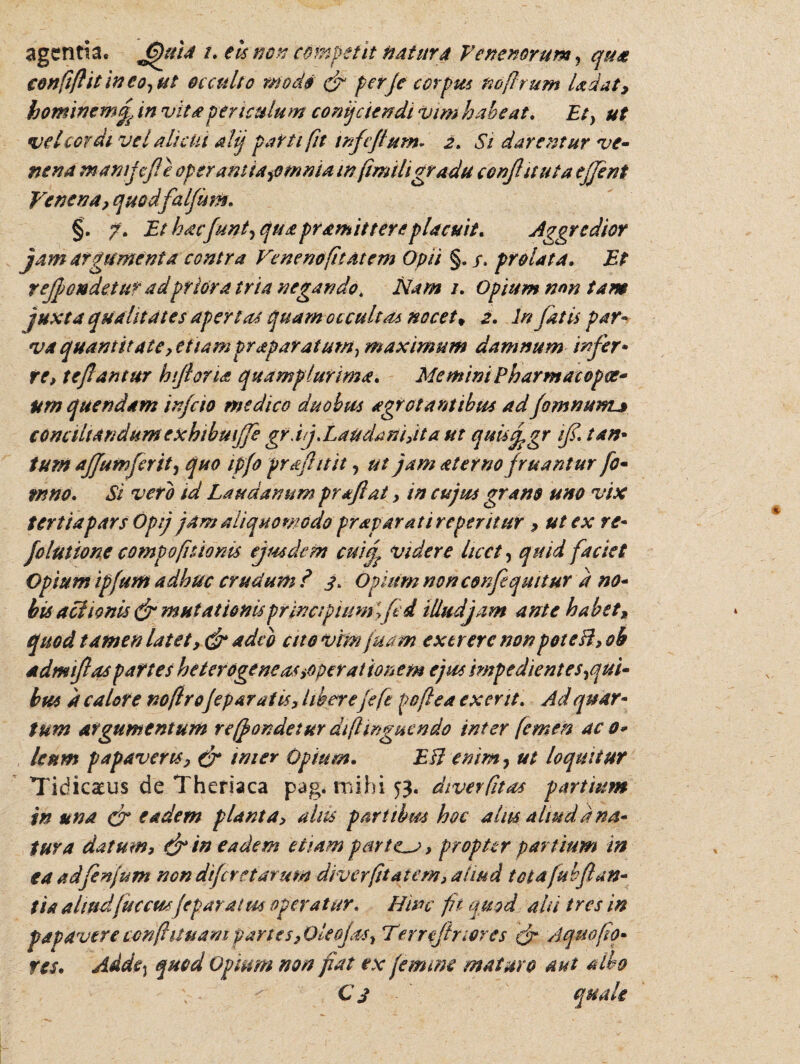 agentia. Quia 1. eis non competit natura Venenorum, quæ
consistit in eo, ut occulto modo & per se corpus nostrum lædat,
hominemq́; in vitæ periculum conijciendi vim habeat. Et, ut
vel cordi vel alicui alij parti sit infestum. 2. Si darentur ve-
nena manifestè operantia, omnia in simili gradu constituta essent
Venena, quod falsum.
§. 7. Et hæc sunt, quæ præmittere placuit. Aggredior
jam argumenta contra Venenositatem Opii §. 5. prolata. Et
respondetur ad priora tria negando. Nam 1. Opium non tam
juxta qualitates apertas quam occultas nocet. 2. In satis par-
va quantitate, etiam præparatum, maximum damnum infer-
re, testantur historiæ quamplurimæ. Memini Pharmacopœ-
um quendam inscio medico duobus ægrotantibus ad somnum
conciliandum exhibuisse gr. iij. Laudani, ita ut quisq́; gr iß. tan-
tum assumserit, quo ipso præstitit, ut jam æterno fruantur so-
mno. Si verò id Laudanum præstat, in cujus grano uno vix
tertia pars Opij jam aliquomodo præparati reperitur, ut ex re-
solutione compositionis ejusdem cuiq́; videre licet, quid faciet
Opium ipsum adhuc crudum? 3. Opium non consequitur à no-
bis actionis & mutationis principium, sed illud jam ante habet,
quod tamen latet, & adeò cito vim suam exerere non potest, ob
admistas partes heterogeneas, operationem ejus impedientes, qui-
bus à calore nostro separatis, libere sese postea exerit. Ad quar-
tum argumentum respondetur distinguendo inter semen ac o-
leum papaveris, & inter Opium. Est enim, ut loquitur
Tidicæus de Theriaca pag. mihi 53. diversitas partium
in una & eadem planta, aliis partibus hoc aliis aliud à na-
tura datum, & in eadem etiam parte, propter partium in
ea ad sensum non discretarum diversitatem, aliud tota substan-
tia aliud succus separatus operatur. Hinc fit quod alii tres in
papavere constituant partes, Oleosas, Terrestriores & Aquosio-
res. Adde, quod Opium non fiat ex semine maturo aut albo
C 3 quale